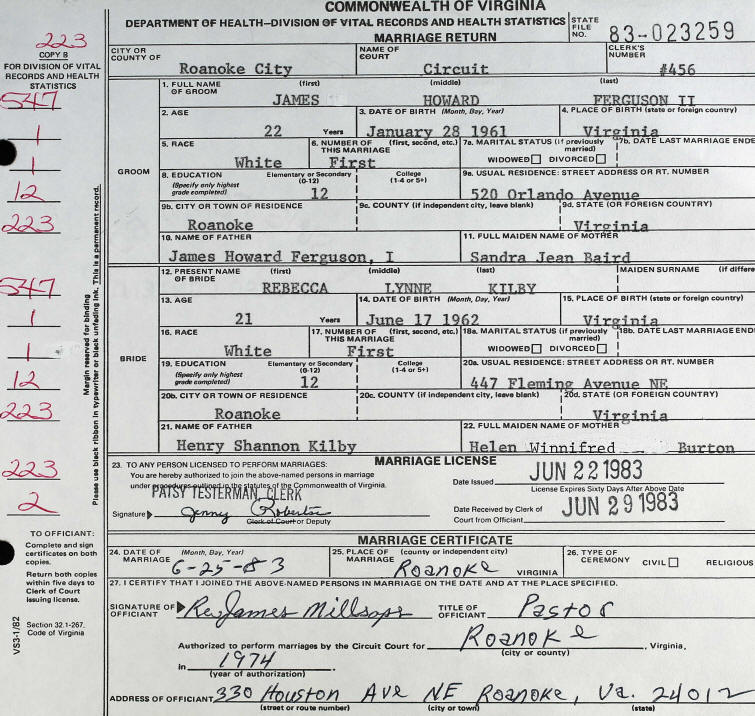 COMMONWEALTH OF VIRGINIA
DEPARTMENT OF HEALTH—DIVISION OF VITAL RECORDS AND HEALTH STATISTICS
MARRIAGE RETURN
STATE FILE NO. 83-023259
223
COPY B
FOR DIVISION OF VITAL RECORDS AND HEALTH STATISTICS
CITY OR COUNTY OF Roanoke City NAME OF COURT Circuit CLERK'S NUMBER #456
547
1
1
12
223
547
1
1
12
223
223
2
GROOM
1. FULL NAME OF GROOM (first) JAMES (middle) HOWARD (last) FERGUSON II
2. AGE 22 Years 3. DATE OF BIRTH (Month, Day, Year) January 28 1961 4. PLACE OF BIRTH (state or foreign country) Virginia
5. RACE White 6. NUMBER OF THIS MARRIAGE (first, second, etc.) First 7a. MARITAL STATUS (if previously married) WIDOWED DIVORCED 7b. DATE LAST MARRIAGE ENDE
8. EDUCATION (Specify only highest grade completed) Elementary or Secondary (0-12) 12 College (1-4 or 5+) 9a. USUAL RESIDENCE: STREET ADDRESS OR RT. NUMBER 520 Orlando Avenue
9b. CITY OR TOWN OF RESIDENCE Roanoke 9c. COUNTY (if independent city, leave blank) 9d. STATE (OR FOREIGN COUNTRY) Virginia
10. NAME OF FATHER James Howard Ferguson, I 11. FULL MAIDEN NAME OF MOTHER Sandra Jean Baird
BRIDE
12. PRESENT NAME OF BRIDE (first) REBECCA (middle) LYNNE (last) KILBY MAIDEN SURNAME (if differe
13. AGE 21 Years 14. DATE OF BIRTH (Month, Day, Year) June 17 1962 15. PLACE OF BIRTH (state or foreign country) Virginia
16. RACE White 17. NUMBER OF THIS MARRIAGE (first, second, etc.) First 18a. MARITAL STATUS (if previously married) WIDOWED DIVORCED 18b. DATE LAST MARRIAGE END
19. EDUCATION (Specify only highest grade completed) Elementary or Secondary (0-12) 12 College (1-4 or 5+) 20a. USUAL RESIDENCE: STREET ADDRESS OR RT. NUMBER 447 Fleming Avenue NE
20b. CITY OR TOWN OF RESIDENCE Roanoke 20c. COUNTY (if independent city, leave blank) 20d. STATE (OR FOREIGN COUNTRY) Virginia
21. NAME OF FATHER Henry Shannon Kilby 22. FULL MAIDEN NAME OF MOTHER Helen Winnifred Burton
Margin reserved for binding
Please use black ribbon in typewriter or black unfading ink. This is a permanent record.
MARRIAGE LICENSE
23. TO ANY PERSON LICENSED TO PERFORM MARRIAGES:
You are hereby authorized to join the above-named persons in marriage
under procedures outlined in the statutes of the Commonwealth of Virginia.
PATSY TESTERMAN, CLERK
Signature Jenny Robertson
Clerk of Court or Deputy
Date Issued JUN 22 1983
License Expires Sixty Days After Above Date
Date Received by Clerk of Court from Officiant JUN 29 1983
TO OFFICIANT:
Complete and sign certificates on both copies.
Return both copies within five days to Clerk of Court issuing license.
Section 32.1-267. Code of Virginia
VS3-1/82
MARRIAGE CERTIFICATE
24. DATE OF MARRIAGE (Month, Day, Year) 6-25-83 25. PLACE OF MARRIAGE (county or independent city) Roanoke VIRGINIA 26. TYPE OF CEREMONY CIVIL RELIGIOUS
27. I CERTIFY THAT I JOINED THE ABOVE-NAMED PERSONS IN MARRIAGE ON THE DATE AND AT THE PLACE SPECIFIED.
SIGNATURE OF OFFICIANT Rev James Millsaps TITLE OF OFFICIANT Pastor
Authorized to perform marriages by the Circuit Court for Roanoke, Virginia,
(city or county)
in 1974.
(year of authorization)
ADDRESS OF OFFICIANT 330 Houston Ave NE Roanoke, Va. 24012
(street or route number) (city or town) (state)